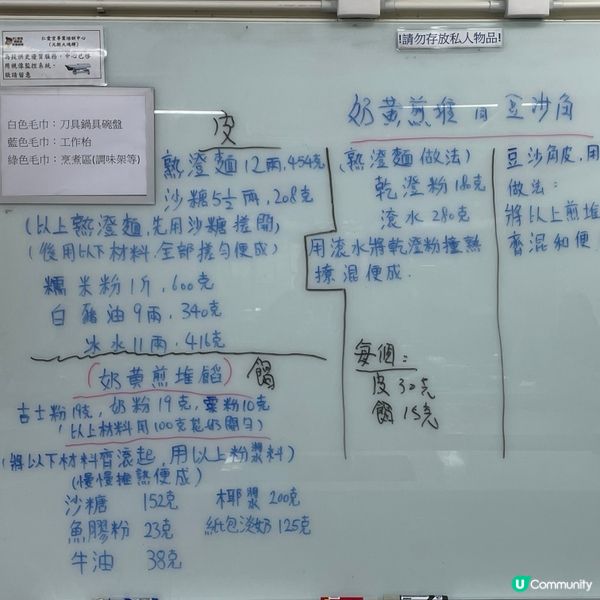 仁愛堂專業培訓中心
為提供更優質服務，中心已啟
用視像監控系統。
敬請留意
!請勿存放私人物品!
白色毛巾：刀具鍋具碗盤
藍色毛巾：工作枱
綠色毛巾：烹煮區(調味架等)
奶黃煎堆 有 豆沙角
皮
熟澄麵12兩,454克
沙糖5½兩,208克
(以上熟澄麵,先用沙糖搓開)
(後用以下材料,全部搓勻便成)
糯米粉1斤,600克
白豬油9兩,340克
冰水11兩,416克
(奶黃煎堆餡) 餡
吉士粉19克,奶粉19克,粟粉10克
(以上材料用100克花奶開勻)
(將以下材料齊滾起,用以上粉漿料)
(慢慢推熟便成)
沙糖 152克 椰漿 200克
魚膠粉 23克 紙包淡奶 125克
牛油 38克
(熟澄麵做法)
乾澄粉 180克
滾水 280克
用滾水將乾澄粉撞熟
撩混便成.
每個：
皮 30克
餡 15克
豆沙角皮,用
做法：
將以上煎堆
齊混和便
U Community